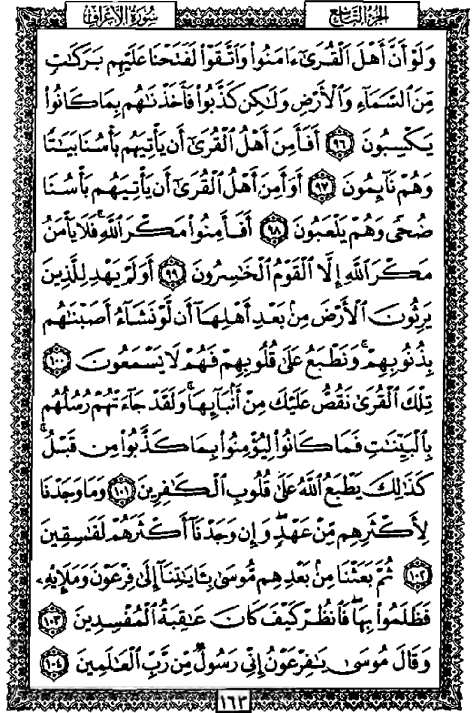 الجزء التاسع
سورة الأعراف
وَلَوْ أَنَّ أَهْلَ الْقُرَىٰٓ ءَامَنُوا۟ وَاتَّقَوْا۟ لَفَتَحْنَا عَلَيْهِم بَرَكَٰتٍ
مِّنَ السَّمَآءِ وَالْأَرْضِ وَلَٰكِن كَذَّبُوا۟ فَأَخَذْنَٰهُم بِمَا كَانُوا۟
يَكْسِبُونَ ٩٦ أَفَأَمِنَ أَهْلُ الْقُرَىٰٓ أَن يَأْتِيَهُم بَأْسُنَا بَيَٰتًا
وَهُمْ نَآئِمُونَ ٩٧ أَوَأَمِنَ أَهْلُ الْقُرَىٰٓ أَن يَأْتِيَهُم بَأْسُنَا
ضُحًى وَهُمْ يَلْعَبُونَ ٩٨ أَفَأَمِنُوا۟ مَكْرَ اللَّهِ ۚ فَلَا يَأْمَنُ
مَكْرَ اللَّهِ إِلَّا الْقَوْمُ الْخَٰسِرُونَ ٩٩ أَوَلَمْ يَهْدِ لِلَّذِينَ
يَرِثُونَ الْأَرْضَ مِنۢ بَعْدِ أَهْلِهَآ أَن لَّوْ نَشَآءُ أَصَبْنَٰهُم
بِذُنُوبِهِمْ ۚ وَنَطْبَعُ عَلَىٰ قُلُوبِهِمْ فَهُمْ لَا يَسْمَعُونَ ١٠٠
تِلْكَ الْقُرَىٰ نَقُصُّ عَلَيْكَ مِنْ أَنۢبَآئِهَا ۚ وَلَقَدْ جَآءَتْهُمْ رُسُلُهُم
بِالْبَيِّنَٰتِ فَمَا كَانُوا۟ لِيُؤْمِنُوا۟ بِمَا كَذَّبُوا۟ مِن قَبْلُ ۚ
كَذَٰلِكَ يَطْبَعُ اللَّهُ عَلَىٰ قُلُوبِ الْكَٰفِرِينَ ١٠١ وَمَا وَجَدْنَا
لِأَكْثَرِهِم مِّنْ عَهْدٍ ۖ وَإِن وَجَدْنَآ أَكْثَرَهُمْ لَفَٰسِقِينَ
١٠٢ ثُمَّ بَعَثْنَا مِنۢ بَعْدِهِم مُّوسَىٰ بِـَٔايَٰتِنَآ إِلَىٰ فِرْعَوْنَ وَمَلَإِي۟هِۦ
فَظَلَمُوا۟ بِهَا ۖ فَانظُرْ كَيْفَ كَانَ عَٰقِبَةُ الْمُفْسِدِينَ ١٠٣
وَقَالَ مُوسَىٰ يَٰفِرْعَوْنُ إِنِّى رَسُولٌ مِّن رَّبِّ الْعَٰلَمِينَ ١٠٤
١٦٣